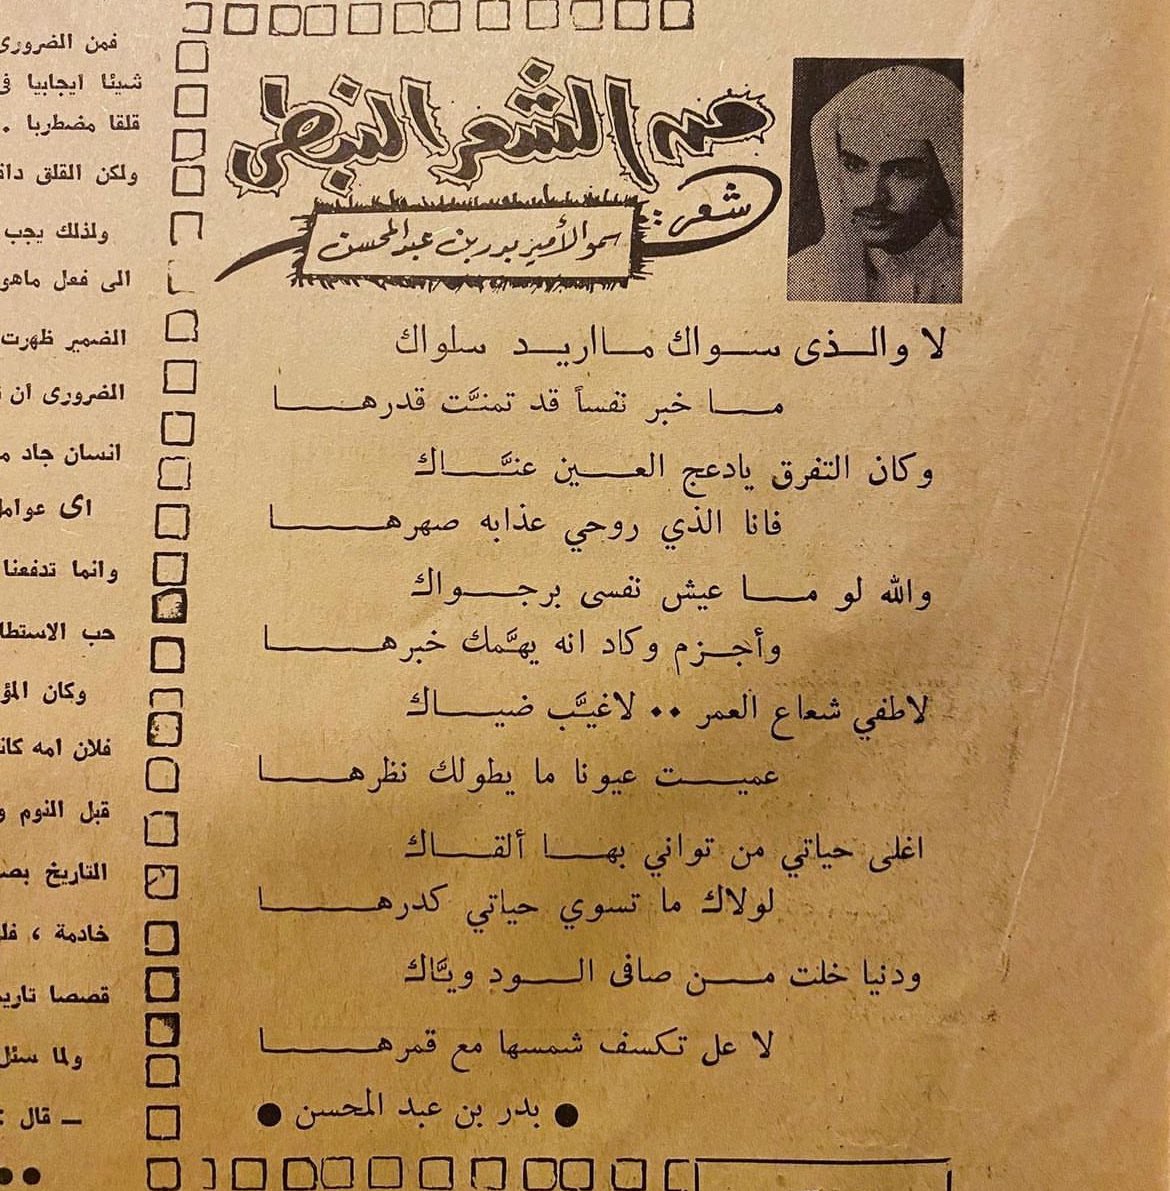 من الشعر النبطى
شعر:
سمو الأمير بدر بن عبد المحسن
لا والذى سواك مااريد سلواك
ما خبر نفساً قد تمنَّت قدرها
وكان التفرق يادعج العين عنَّاك
فانا الذي روحي عذابه صهرها
والله لو ما عيش نفسى برجواك
وأجزم وكاد انه يهمَّك خبرها
لاطفي شعاع العمر •• لاغيَّب ضياك
عميت عيونا ما يطولك نظرها
اغلى حياتي من تواني بها ألقاك
لولاك ما تسوي حياتي كدرها
ودنيا خلت من صافى الود ويَّاك
لا عل تكسف شمسها مع قمرها
● بدر بن عبد المحسن ●
فمن الضرورى
شيئا ايجابيا فى
قلقا مضطربا .
ولكن القلق
ولذلك يجب
الى فعل ماهو
الضمير ظهرت
الضرورى ان
انسان جاد
اى عوامل
وانما تدفعنا
حب
وكان
فلان امه
قبل النوم و
التاريخ
خادمة ،
قصصا
ولما سئل
— قال :
●●